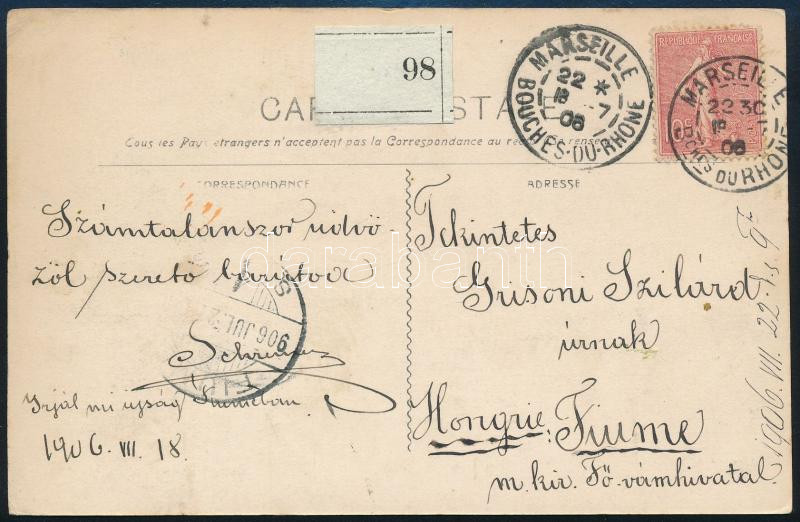 98
CAR STA
Tous les Pays étrangers n'acceptent pas la Correspondance au
MARSEILLE
22 * 7
06
BOUCHES-DU-RHONE
REPUBLIQUE FRANÇAISE
MARSEILLE
22 30
06
BCHES DU RHONE
CORRESPONDANCE
Számtalanszor üdvö-
zöl szerető barátod
Irjál mi ujság Fiumeban
1906. VII. 18.
906 JUL. 2
FIU
ADRESSE
Tekintetes
Grisoni Szilárd
úrnak
Hongrie: Fiume
m. kir. Fő-vámhivatal.
1906. VII. 22.
darabanth